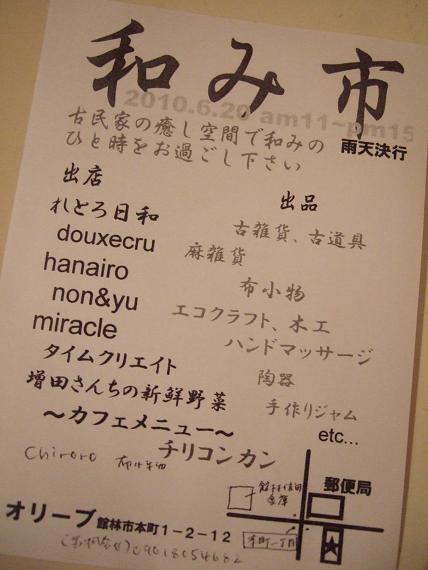 和み市
2010.6.20 am11~pm15
雨天決行
古民家の癒し空間で和みの
ひと時をお過ごし下さい
出店
れとろ日和
douxecru
hanairo
non&yu
miracle
タイムクリエイト
増田さんちの新鮮野菜
～カフェメニュー～
チリコンカン
Chiroro
出品
古雑貨、古道具
麻雑貨
布小物
エコクラフト、木工
ハンドマッサージ
陶器
手作りジャム
etc...
郵便局
本町一丁目
オリーブ 館林市本町1-2-12
09018054682